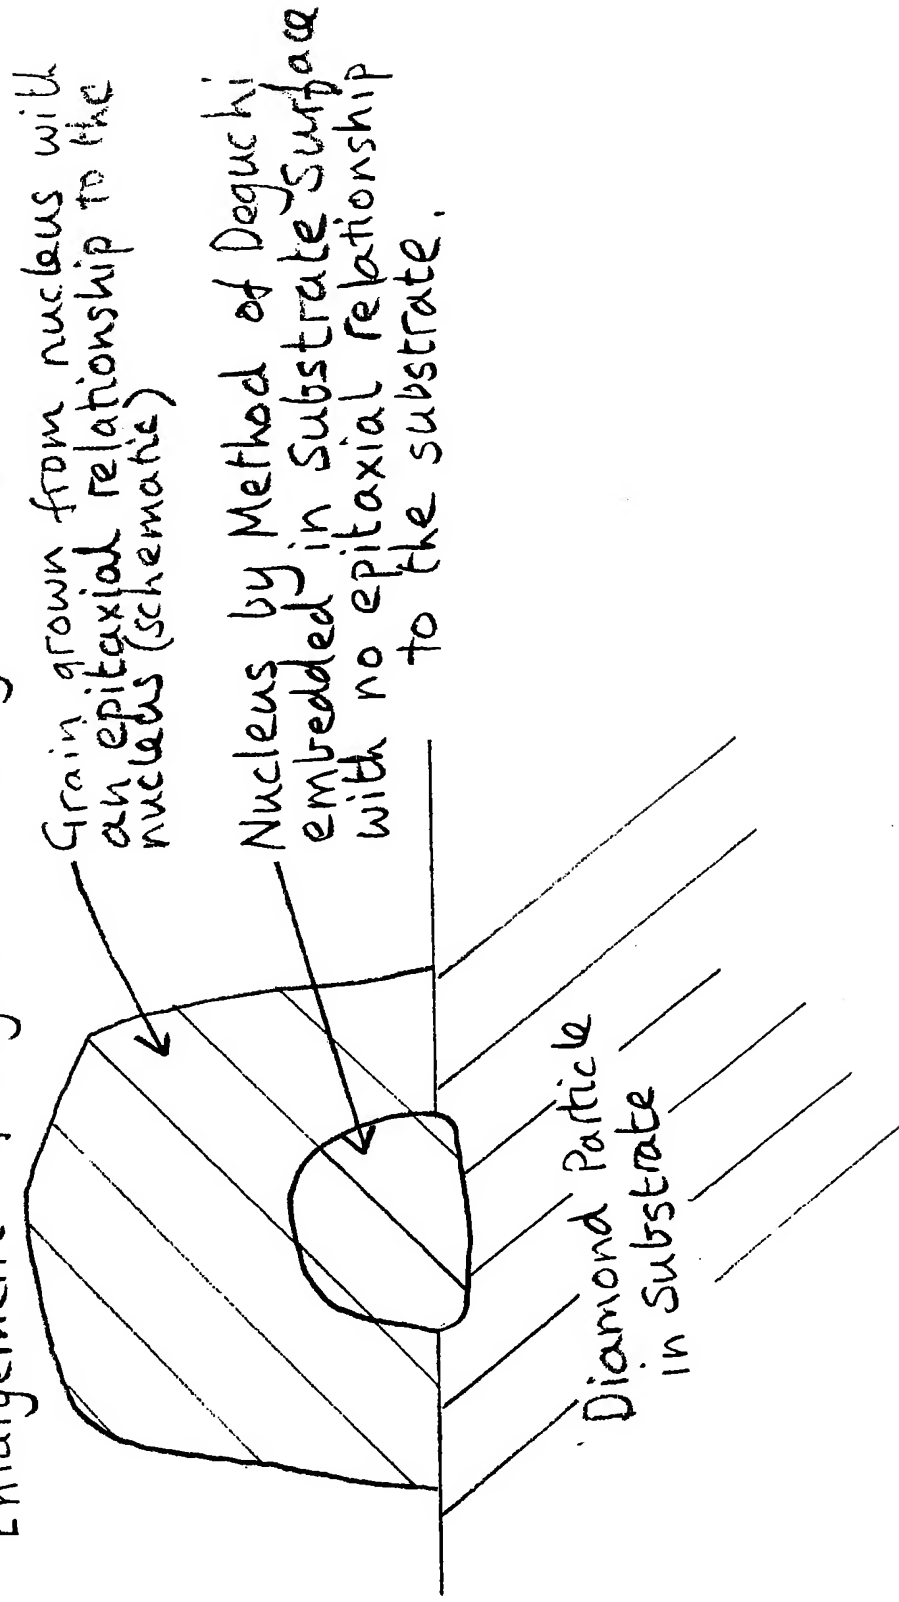 Grain grown from nucleus with
an epitaxial relationship to the
nucleus (schematic)
Nucleus by Method of Deguchi
embedded in substrate surface
with no epitaxial relationship
to the substrate.
Diamond Particle
in substrate